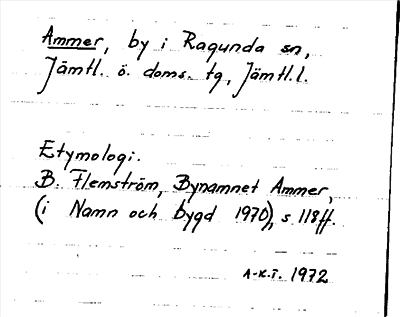 Ammer, by i Ragunda sn,
Jämtl. ö. doms. tg, Jämtl.l.
Etymologi.
B. Flemström, Bynamnet Ammer,
(i Namn och bygd 1970), s 118ff.
A-K.T. 1972